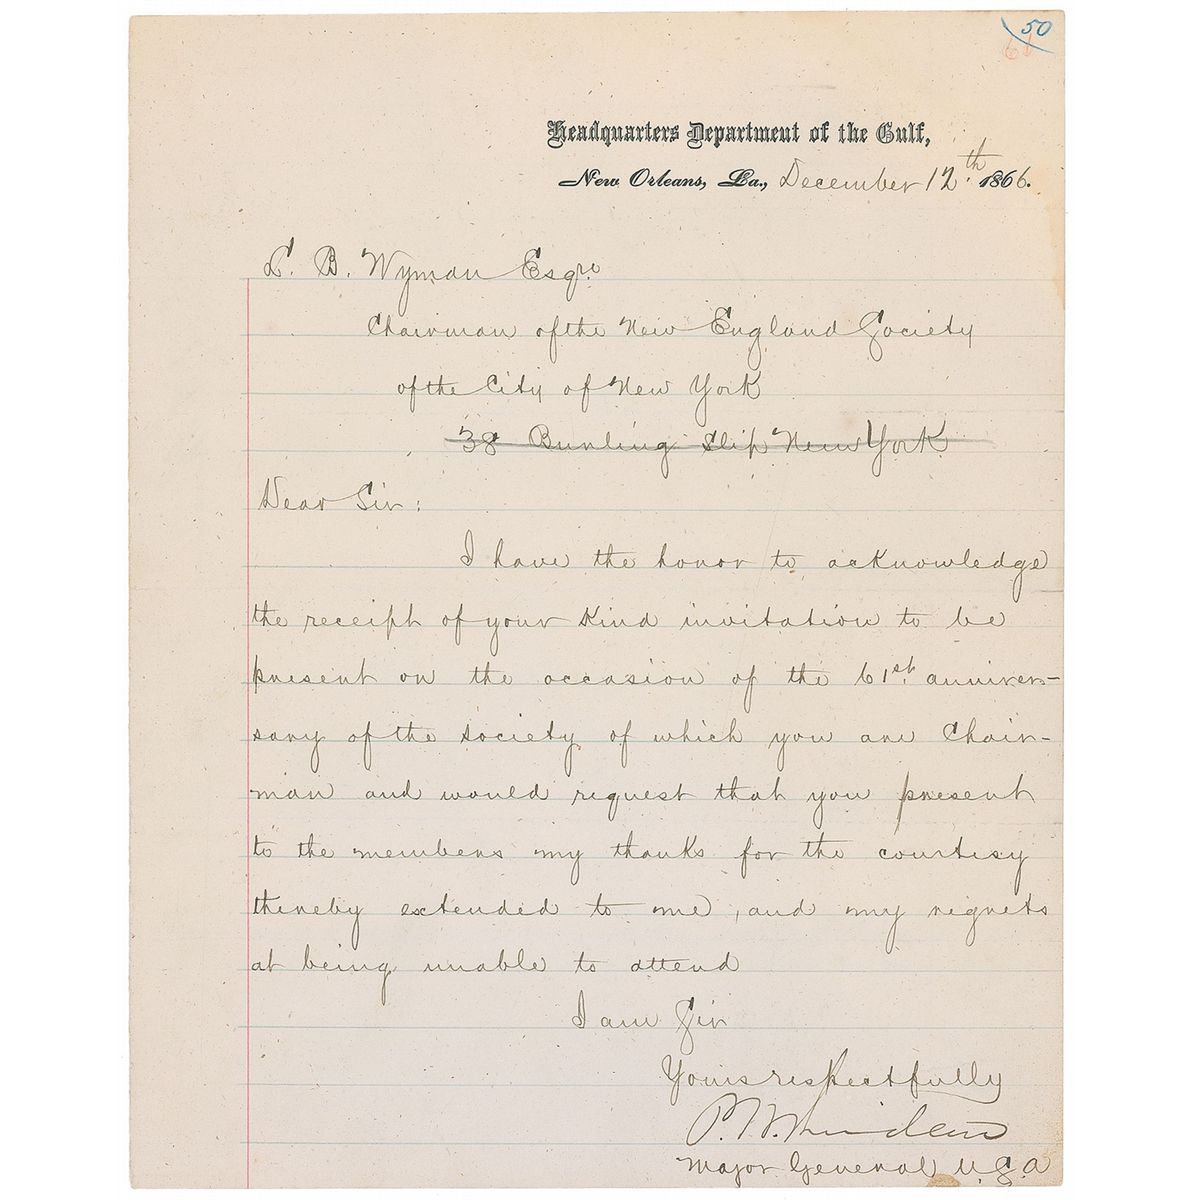 50
Headquarters Department of the Gulf,
New Orleans, La., December 12th. 1866.
L. B. Wyman Esqre
Chairman of the New England Society
of the City of New York
38 Burling Slip New York
Dear Sir:
I have the honor to acknowledge
the receipt of your kind invitation to be
present on the occasion of the 61st. anniver-
sary of the Society of which you are Chair-
man and would request that you present
to the members my thanks for the courtesy
thereby extended to me, and my regrets
at being unable to attend
I am Sir
Yours respectfully
P. H. Sheridan
Major General U.S.A